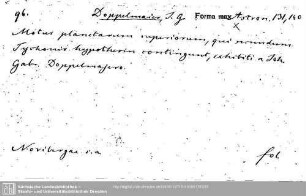 96. Doppelmaier, J. G. Forma max. Astron. 131,140
Motus planetarum superiorum, qui secundum
Tychonis hypothesin contingunt, exhibiti a Joh.
Gabr. Doppelmajero.
Noribergae s.a. fol
Sächsische Landesbibliothek -
Staats- und Universitätsbibliothek Dresden